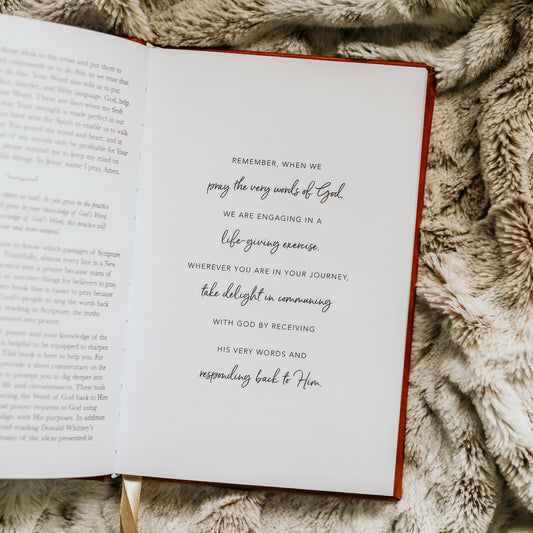 those idols to the cross and put them to
commands us to do this, so we trust that
do this. Your Word also tells us to put
slander, and filthy language. God, help
There are days when my flesh
that Your strength is made perfect in our
have sent the Spirit to enable us to walk
You guard my mind and heart, and in
of my mouth only be profitable for Your
please remind me to keep my mind on
things. In Jesus' name I pray, Amen.
others as well. As you grow in the practice
grow in your knowledge of God's Word.
knowledge of God's Word, this practice will
and more natural.
to know which passages of Scripture
Truthfully, almost every line in a New
turned into a prayer because many of
because things for believers to pray
other book that is easier to pray because
God's people to sing the words back
reading in Scripture, the truths
turned into prayer
prayer and your knowledge of the
is helpful to be equipped to sharpen
This book is here to help you. For
provide a short commentary on the
to prompt you to dig deeper into
life and circumstances. These tools
praying the Word of God back to Him
prayer requests to God using
align with His purposes. In addition
read reading Donald Whitney's
many of the ideas presented in
REMEMBER, WHEN WE
pray the very words of God,
WE ARE ENGAGING IN A
life-giving exercise.
WHEREVER YOU ARE IN YOUR JOURNEY,
take delight in communing
WITH GOD BY RECEIVING
HIS VERY WORDS AND
responding back to Him.